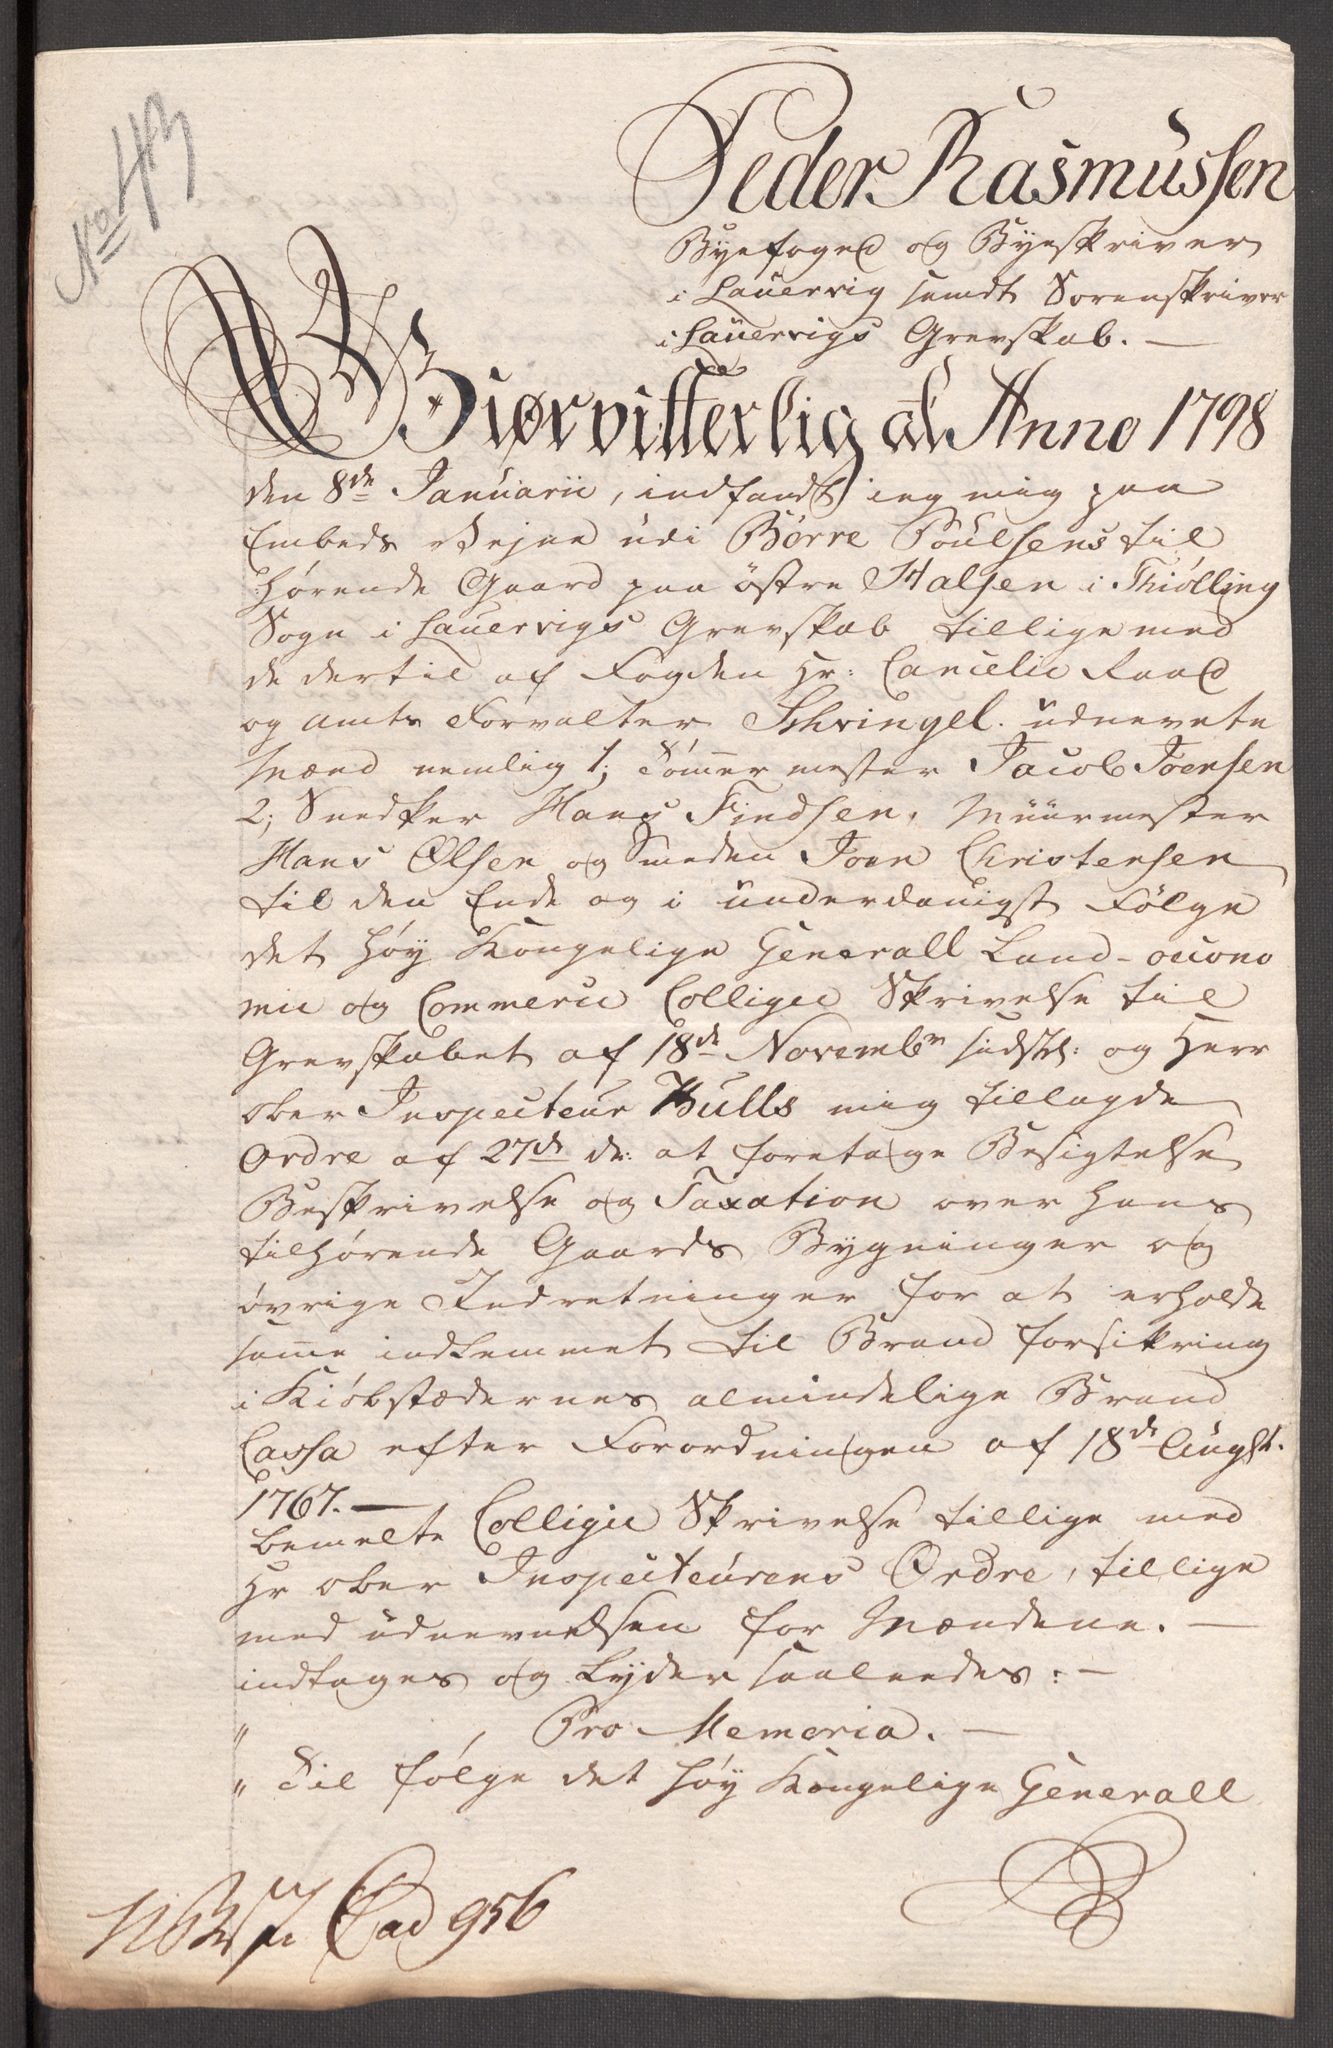 No 43
Peder Rasmussen
Byefoged og Byeskriver
i Laurvig samdt Sorenskriver
i Laurvigs Grevskab. —
Giør vitterlig at Anno 1798
den 8de Januarii, indfandt ieg mig paa
Embeds Vejne udi Börre Poulsens til
hørende Gaard paa östre Halsen i Thiølling
Sogn i Lauervigs Grevskab tillige med
de dertil af Fogden Hr: Cancelie Raad
og Amts Forvalter Schvingel udnevnte
Mænd nemlig 1; Tömmer mester Jacob Joensen
2; Snedker Hans Findsen, Muurmester
Hans Olsen og Smeden Joen Christensen
til den Ende og i underdanigst Følge
det høy Kongelige Generall Land-oecono
mie og Commerce Collegii Skrivelse til
Grevskabet af 18de Novembr sidstl: og Herr
ober Inspecteur Bulls mig tillagde
Ordre af 27de ds: at foretage Besigtelse
Beskrivelse og Taxation over hans
tilhørende Gaards Bygninger og
övrige Indretninger for at erholde
samme indlemmet til Brand forsikring
i Kiöbstædernes almindelige Brand
Cassa efter Forordningen af 18de Augst.
1767. —
bemelte Collegii Skrivelse tillige med
Hr ober Inspecteurens Ordre, tillige
med udnevnelsen for Mændene. —
indtages og Lyder saaledes: —
" Pro Memoria. —
" Til følge det høy Kongelige Generall
Cad 956